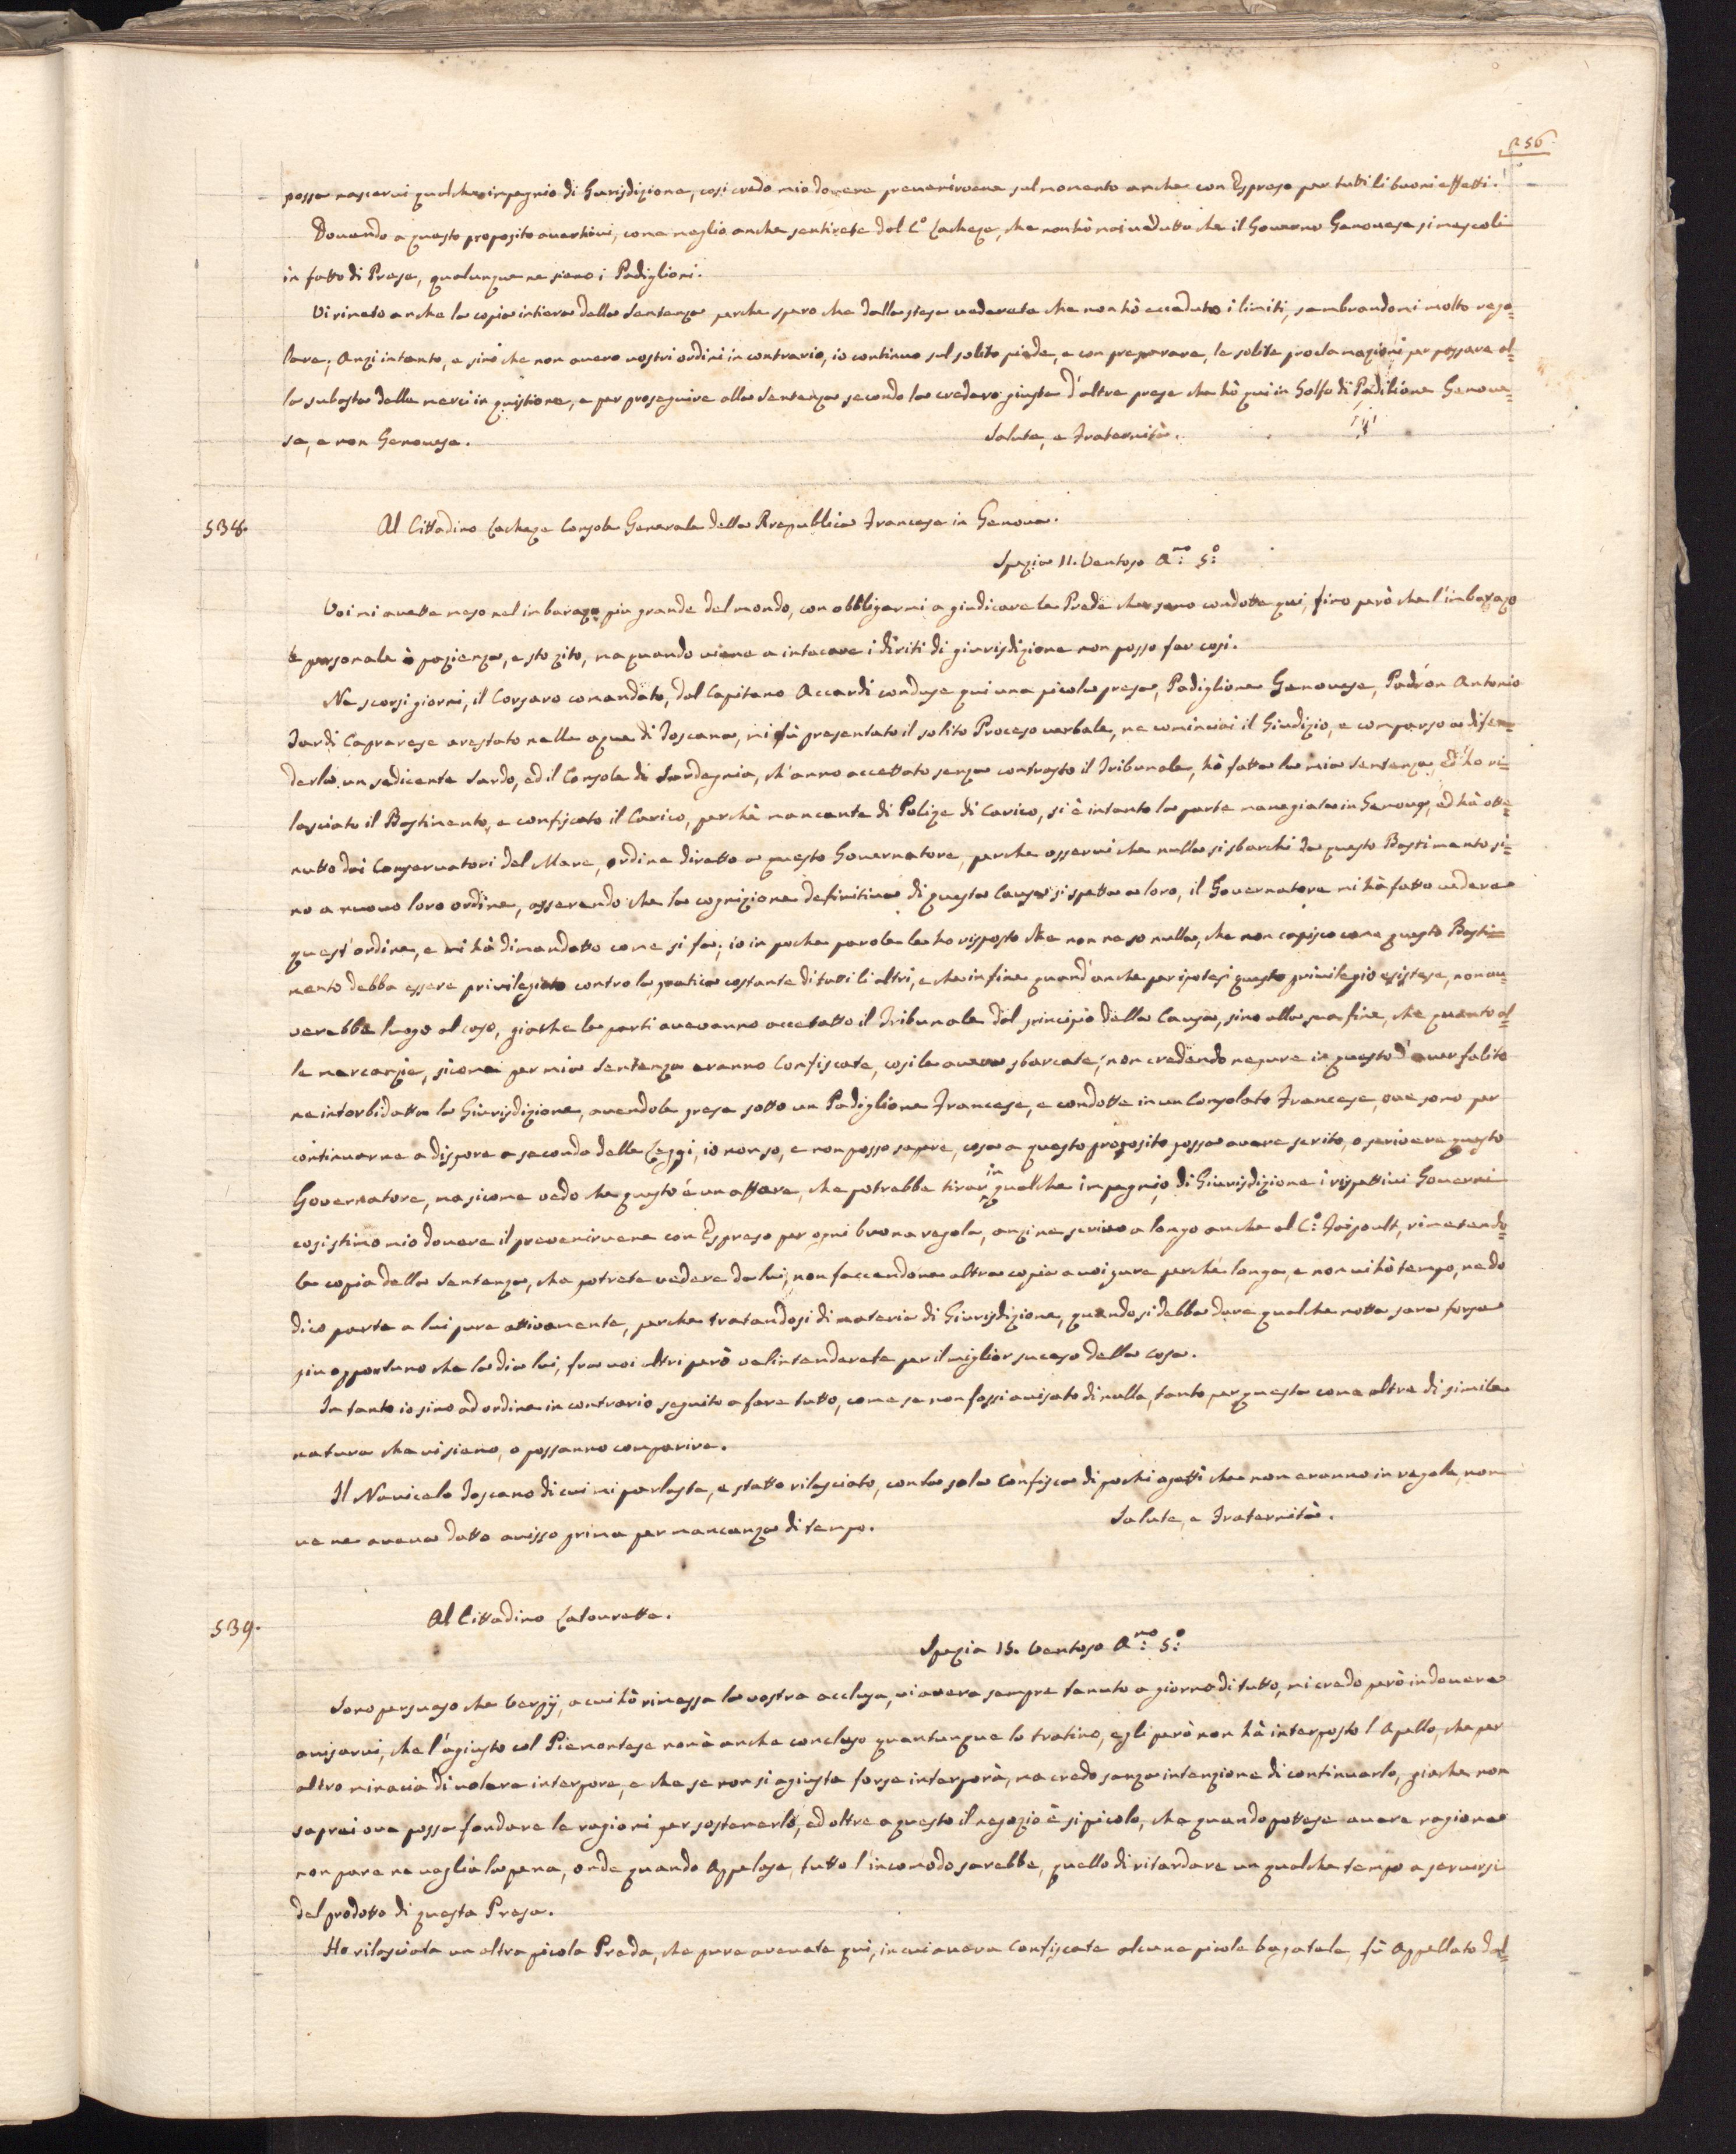 256
possa nascervi qualche impegnio di Giurisdizione, cosi credo mio dovere prevenirvene sul momento anche con Espreso per tutti li buoni effetti.
Dovendo a questo proposito avertirvi, come meglio anche sentirete dal C.° Lacheze, che non hò mai vedutto che il Governo Genovese si mescoli
in fatto di Prese, qualunque ne sieno i Padiglioni.
Vi rimeto anche la copia intiera della Sentenza perche spero che dalla stesa vederete che non hò ecceduto i limiti, sembrandomi molto rego=
lare; Anzi intanto, e sino che non averò vostri ordini in contrario, io continuo sul solito piede, e con preparare, le solite proclamazioni per passare al=
la subasta delle merci in quistione, e per proseguire alla Sentenza secondo la crederò giusta d'altre prese che hò qui in Golfo di Padilione Genove=
se, e non Genovese. Salute, e Fraternità.
538. Al Cittadino Lacheze Console Generale della Republica Francese in Genova.
Spezia 11. Ventoso A.no 5.°
Voi mi avette meso nel imbarazo piu grande del mondo, con obbligarmi a giudicare le Prede che sono condotte qui, fino però che l'imbarazo
è personale ò pazienza, e sto zito, ma quando viene a intacare i diriti di giurisdizione non posso far cosi.
Ne scorsi giorni, il Corsaro comandato, dal Capitano Accardi conduse qui una picola presa, Padiglione Genovese, Padron Antonio
Sardi Caprarese arestato nelle aque di Toscana, mi fù presentato il solito Proceso verbale, ne cominciai il Giudizio, e comparso a difen=
derla un sedicente Sardo, ed il Console di Sardegnia, ch'anno accettato senza contrasto il Tribunale, hò fatta la mia Sentenza, ed ho ri=
lasciato il Bastimento, e confiscato il Carico, perchè mancante di Polize di Carico, si è intanto la parte manegiata in Genova, ed hà otte=
nutto dai Conservatori del Mare, ordine diretto a questo Governatore, perche osservi che nulla si sbarchi da questo Bastimento si=
no a nuovo loro ordine, asserendo che la cognizione definitiva di questa Causa si spetta a loro, il Governatore mi hà fatto vedere
quest'ordine, e mi hà dimandatto come si fa; io in poche parole le ho risposto che non ne so nulla, che non capisco come questo Basti=
mento debba essere privilegiato contro la pratica costante di tutti li altri, e che infine quand'anche per ipotesi questo privilegio esistese, non av=
verebbe luogo al caso, giache le parti avevanno accetatto il Tribunale dal principio della Causa, sino alla sua fine, che quanto al=
le mercanzie, sicome per mia Sentenza eranno Confiscate, cosi le aveva sbarcate; non credendo nepure in questo d'aver falito
ne intorbidatta la Giurisdizione, avendole prese sotto un Padiglione Francese, e condotte in un Consolato Francese, ove sono per
continuarne a dispore a seconda delle Leggi, io non so, e non posso sapere, cosa a questo proposito possa avere scrito, o scrivere questo
Governatore, ma sicome vedo che questo é un affare, che potrebbe tirar in qualche impegnio di Giurisdizione i rispettivi Governi
cosi stimo mio dovere il prevenirvene con Espreso per ogni buona regola, anzi ne scrivo a longo anche al C.° Faipoult, rimetendo=
le copia della Sentenza, che potrete vedere da lui, non faccendone altra copia a voi pure perché longa, e non vi hò tempo, ne do
dico parte a lui pure ativamente, perche tratandosi di materia di Giurisdizione, quando si debba dare qualche notta sara forse
piu opportuno che la dia lui, fra voi altri però ve l'intenderete per il miglior suceso della cosa.
In tanto io sino ad ordine in contrario seguito a fare tutto, come se non fossi avisato di nulla, tanto per questa come altre di simile
natura che vi siano, o possanno comparire.
Il Navicelo Toscano di cui mi parlaste, e statto rilasciato, con la sola Confisca di pochi ogetti che non eranno in regola, non
ve ne aveva datto avisso prima per mancanza di tempo. Salute, e Fraternità.
539. Al Cittadino Latourette.
Spezia 15. Ventoso A.no 5.°
Sono persuaso che Verpÿ, a cui hò rimessa la vostra acclusa, vi avera sempre tenuto a giorno di tutto, mi credo però in dovere
avisarvi, che l'agiusto col Piemontese non è anche concluso quantunque lo tratino, egli però non hà interposto l'Apello, che per
altro minacia di volere interpore, e che se non si agiusta forse interporà, ma credo senza intenzione di continuarlo, giache non
saprei ove possa fondare le ragioni per sostenerlo, ed oltre a questo il negozio è si picolo, che quando pottese avere ragione
non pare ne voglia la pena, onde quando Appelase, tutto l'incomodo sarebbe, quello di ritardare un qualche tempo a servirsi
del prodotto di questa Presa.
Ho rilasciata un altra picola Preda, che pure avevate qui, in cui aveva Confiscate alcune picole bagatele, fù Appellato dal=